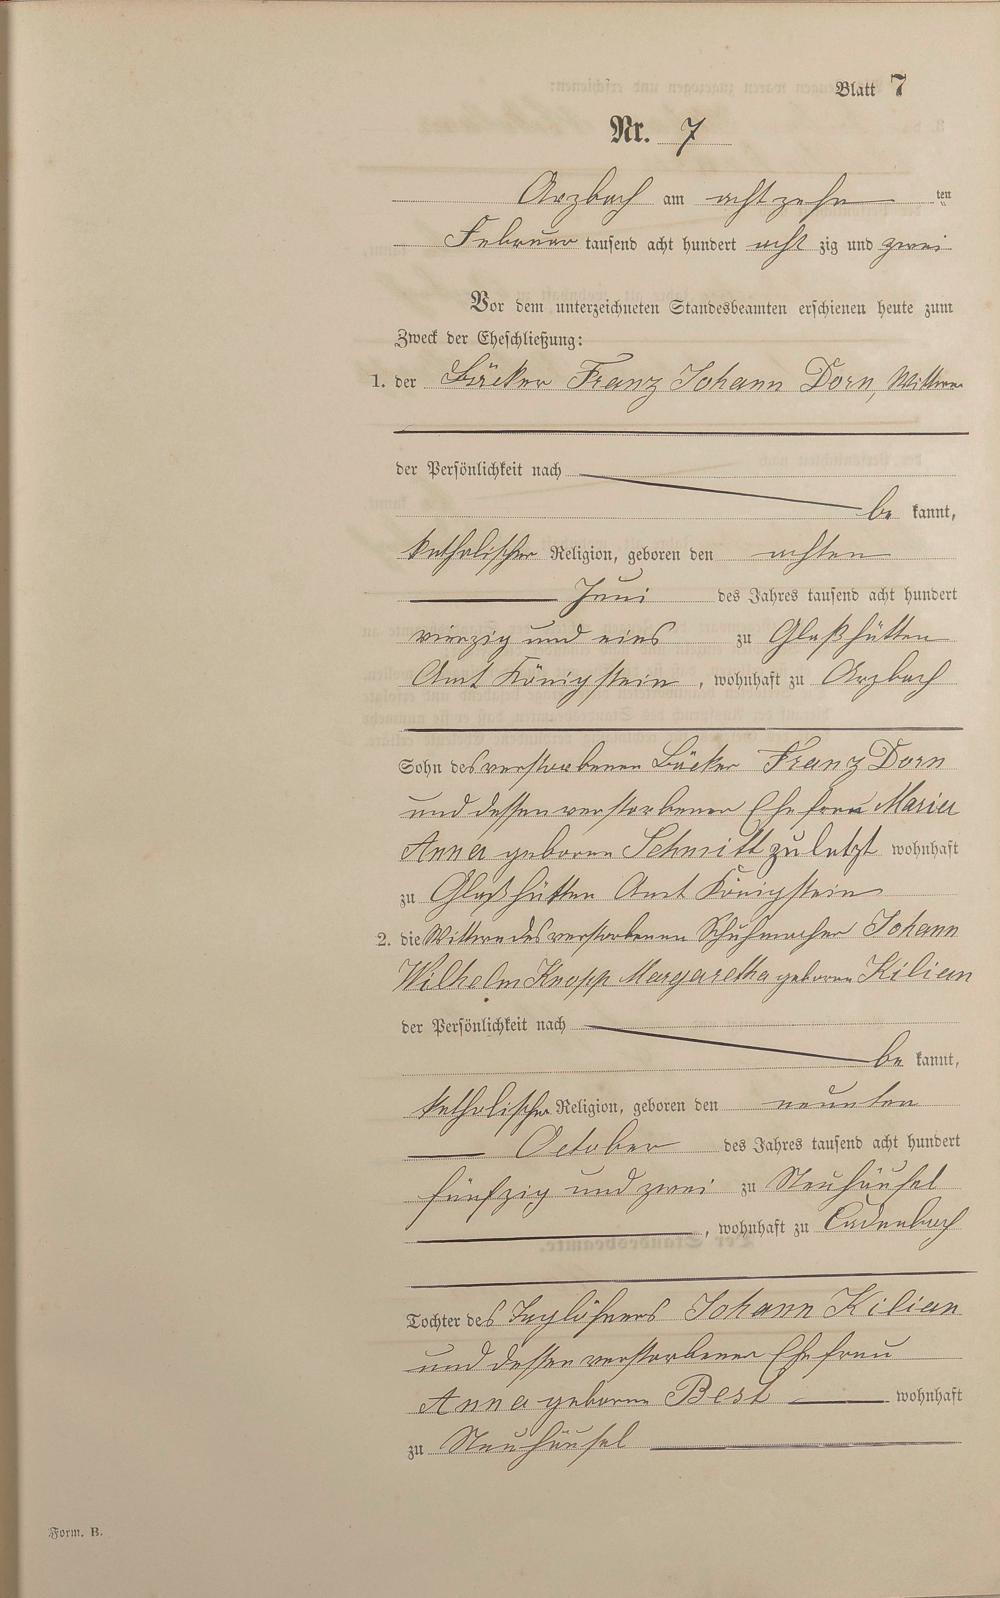 Blatt 7
Nr. 7
Arzbach am achtzehn ten
Februar tausend acht hundert acht zig und zwei
Vor dem unterzeichneten Standesbeamten erschienen heute zum
Zweck der Eheschließung:
1. der Bäcker Franz Johann Dorn, Wittwer
der Persönlichkeit nach
be kannt,
katholischer Religion, geboren den achten
Juni des Jahres tausend acht hundert
vierzig und eins zu Glaßhütten
Amt Königstein, wohnhaft zu Arzbach
Sohn des verstorbenen Bäcker Franz Dorn
und dessen verstorbener Ehefrau Maria
Anna geborene Schmitt zuletzt wohnhaft
zu Glaßhütten Amt Königstein
2. die Wittwe des verstorbenen Schuhmacher Johann
Wilhelm Knopp Margaretha geborene Kilian
der Persönlichkeit nach
be kannt,
katholischer Religion, geboren den neunten
October des Jahres tausend acht hundert
fünfzig und zwei zu Neuhäusel
, wohnhaft zu Cadenbach
Tochter des Taglöhners Johann Kilian
und dessen verstorbener Ehefrau
Anna geborene Best wohnhaft
zu Neuhäusel
Form. B.